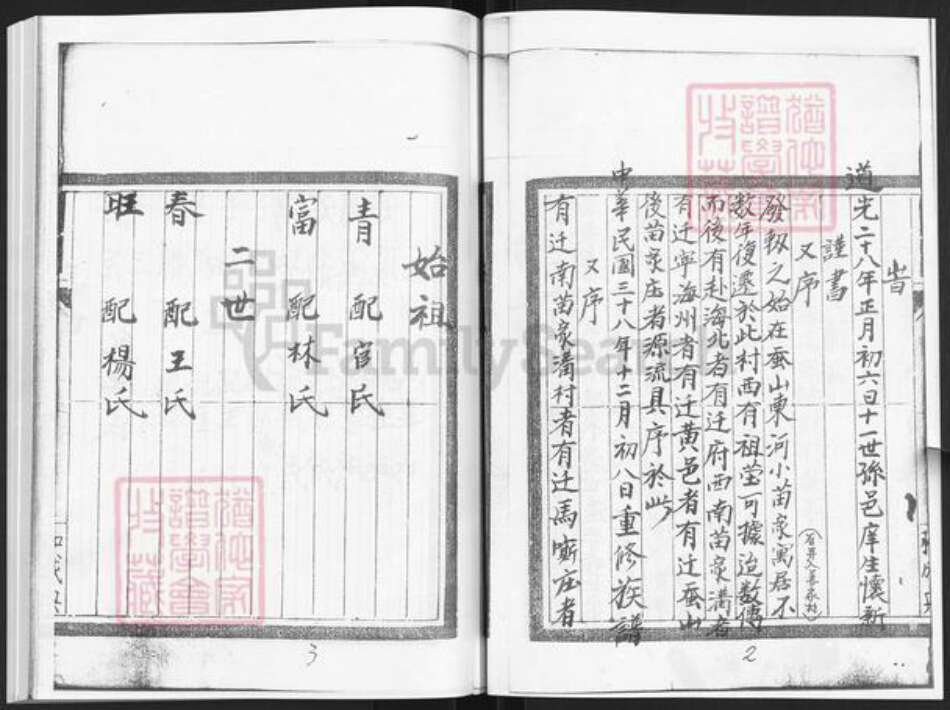 時
道光二十八年正月初六日十一世孫邑庠生懷新
謹書
又序
發靷之始在蚕山東河小苗家寓居不
数年復遷於此村西有祖塋可據迨数傳
而後有赴海北者有迁府西南苗家溝者
有迁寧海州者有迁黄邑者有迁蚕山
後苗家庄者源流具序於此
中華民國三十八年十二月初八日重修族譜
又序
有迁南苗家溝村者有迁馬嘶庄者
2
始祖
青 配官氏
富 配林氏
二世
春 配王氏
旺 配楊氏
3
FamilySearch